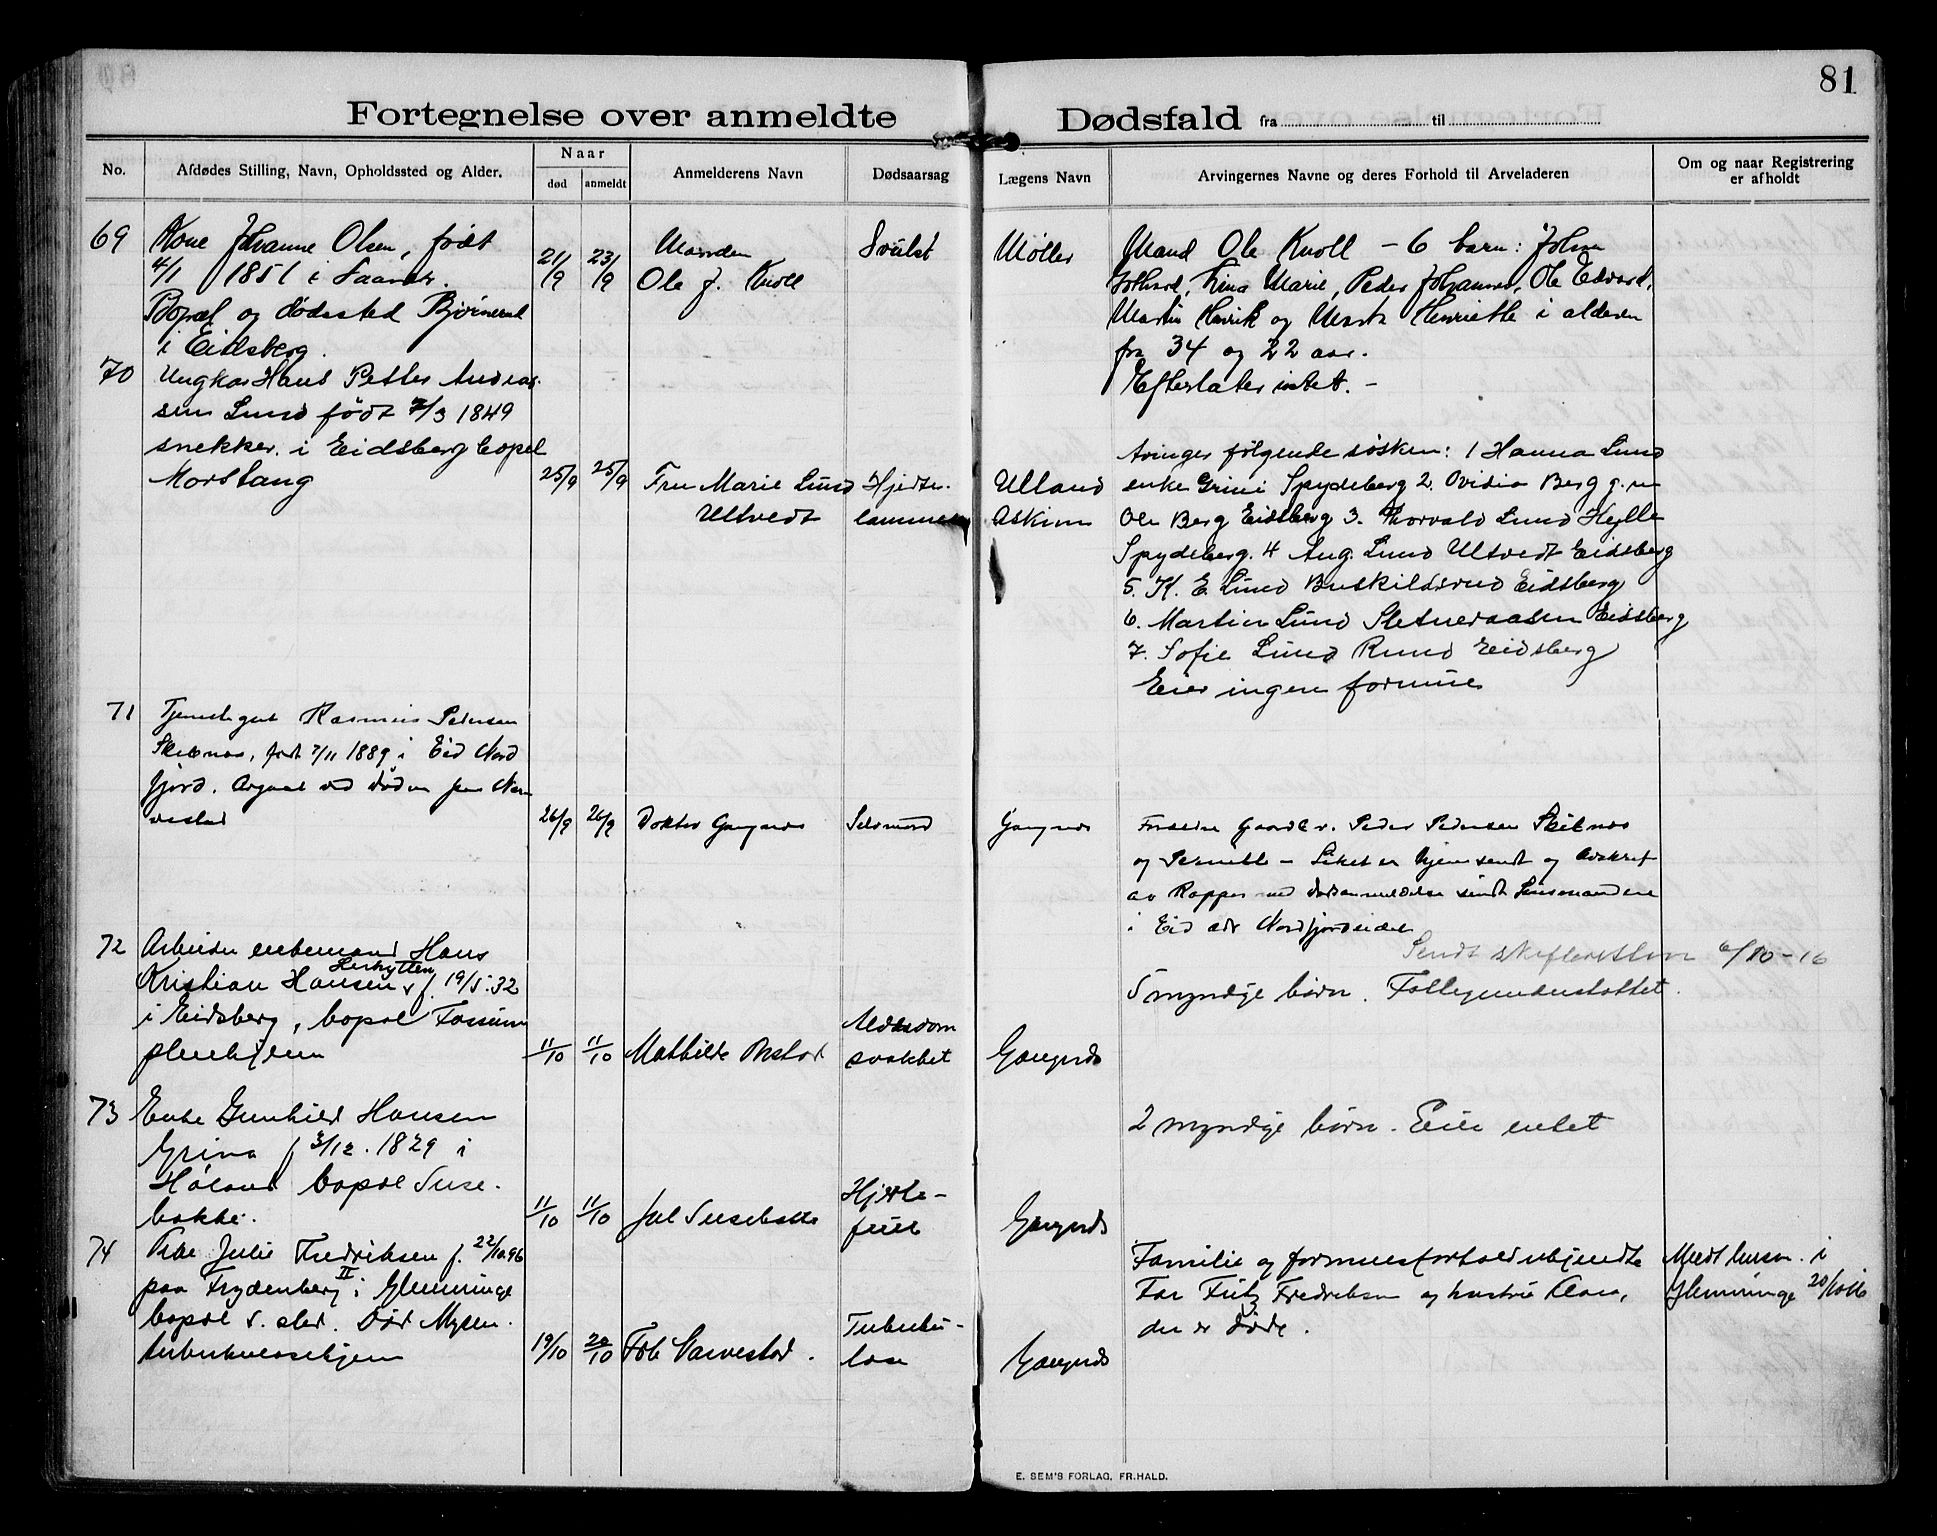 81
Fortegnelse over anmeldte Dødsfald fra til
No.
Afdødes Stilling, Navn, Opholdssted og Alder.
Naar
død
anmeldt
Anmelderens Navn
Dødsaarsag
Lægens Navn
Arvingernes Navne og deres Forhold til Arveladeren
Om og naar Registrering
er afholdt
69
Kone Johanne Olsen, født
4/1 1851 i Saaner.
Bopæl og dødssted Bjørnerud
i Eidsberg.
21/9
23/9
Manden
Ole J. Knoll
Svulst
Møller
Mand Ole Knoll - 6 barn: Johan
Gothard, Lina Marie, Peder Johannes, Ole Edvard,
Martin Henrik og Marta Henriette i alderen
fra 34 og 22 aar.
Efterlater intet. -
70
Ungkar Hans Petter Andreas-
sen Lund født 7/3 1849
snekker. i Eidsberg bopel
Morstang
25/9
25/9
Fru Marie Lund
Ultvedt
Hjerte-
lammelse
Ulland
Askim
Arvinger følgende søsken: 1 Hanna Lund
enke Grini Spydeberg 2. Ovidia Berg g. m
Ole Berg Eidsberg 3. Thorvald Lund Hylle
Spydeberg. 4 Aug. Lund Ultvedt Eidsberg
5. K. E. Lund Buskildsrud Eidsberg
6. Martin Lund Sletneraasen Eidsberg
7. Sofie Lund Rund Eidsberg
Eier ingen formue
71
Tjenestegut Rasmus Pedersen
Skibnes, født 7/11 1889 i Eid Nord
fjord. Bopæl ved døden paa Nar
vestad
26/9
26/9
Doktor Gangnæs
Selvmord
Gangnæs
Forældre Gaardbr. Peder Pedersen Skibnes
og Pernille - Liket er hjemsendt og Avskrift
av Rapper med dødsanmeldelse sendt Lensmanden
i Eid adr Nordfjordeidet
Sendt skifteretten 6/10-16
72
Arbeider enkemand Hans
Kristian Hansen Herkytten f. 19/5.32
i Eidsberg, bopæl Fossum
pleiehjem
11/10
11/10
Mathilde Onstad
Alderdom
svakhet
Gangnæs
5 myndige børn. Fattigunderstøttet.
73
Enke Gunhild Hansen
Grina f 3/12. 1829 i
Høland bopæl Suse-
bakke.
11/10
11/10
Jul Susebakke
Hjerte-
feil
Gangnæs
2 myndige børn. Eier intet
74
Pike Julie Fredriksen f. 22/10.96
paa Frydenberg II i Glemminge
bopæl s. sted. Død Mysen
tuberkulosehjem
19/10
20/10
Frk Narvestad.
Tuberku-
lose
Gangnæs
Familie og formuesforhold ubekjendte
Far Fritz Fredriksen og hustru Klara,
der er døde.
Meldt lensm. i
Glemminge 20/10 16
E. SEM'S FORLAG, FR.HALD.